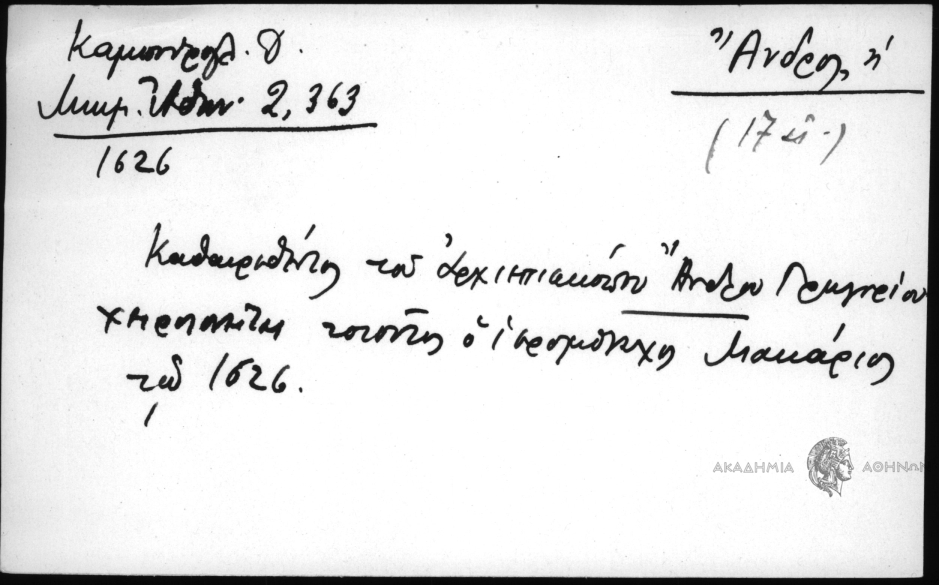 Καμπούρογλ. Δ.
Μνημ. Ἀθην. 2, 363
1626
Ἄνδρος, ἡ
(17 αἰ.)
Καθαιρεθέντος τοῦ ἀρχιεπισκόπου Ἄνδρου Γρηγορίου
χειροτονεῖται τοιοῦτος ὁ ἱερομόναχος Μακάριος
τῷ 1626.
ΑΚΑΔΗΜΙΑ ΑΘΗΝΩΝ